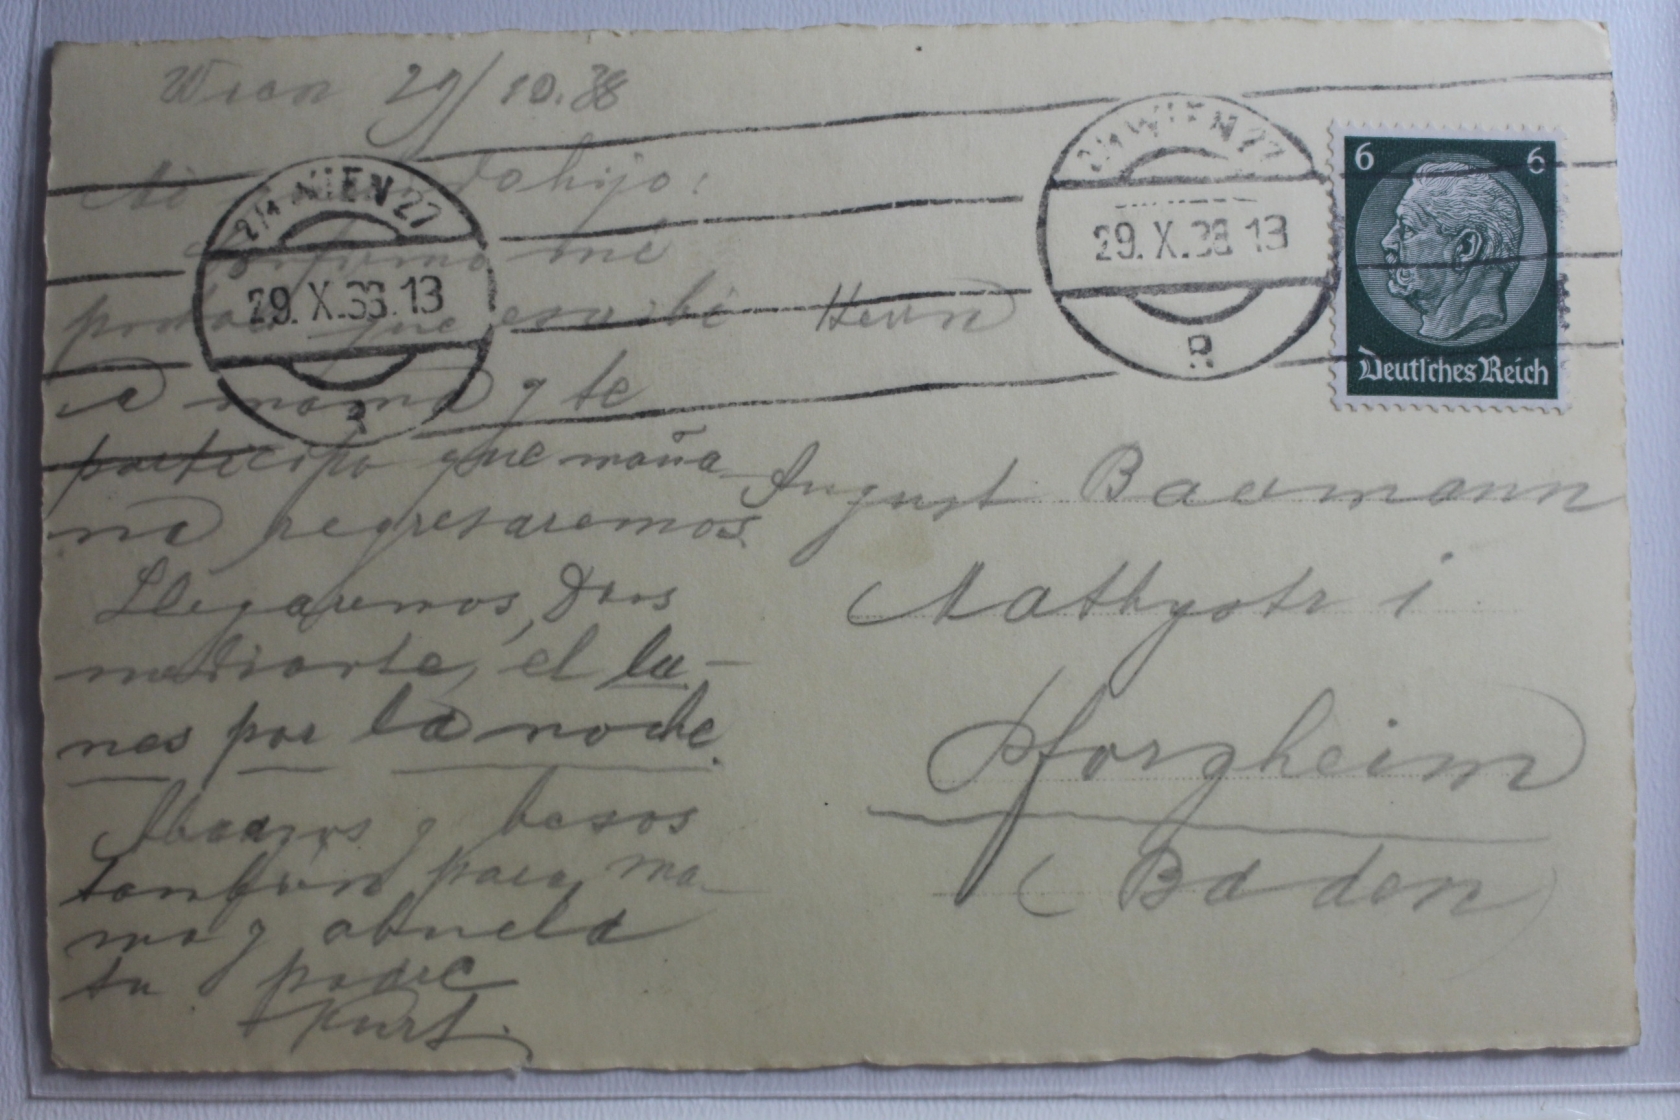 Wien 29/10.38
Mi dohijo:
Confirmo me
postal que escribi
a mamá y te
participo que maña
na regresaremos.
Llegaremos, Dios
mediante, el lu-
nes por la noche.
Abrazos y besos
también para ma-
má y abuela
tu padre
Kurt.
2/1 WIEN 27
29. X. 38. 13
2/1 WIEN 27
29. X. 38 13
6 6
Deutsches Reich
Herrn
August Baumann
Mathystr 1
Pforzheim
(Baden)